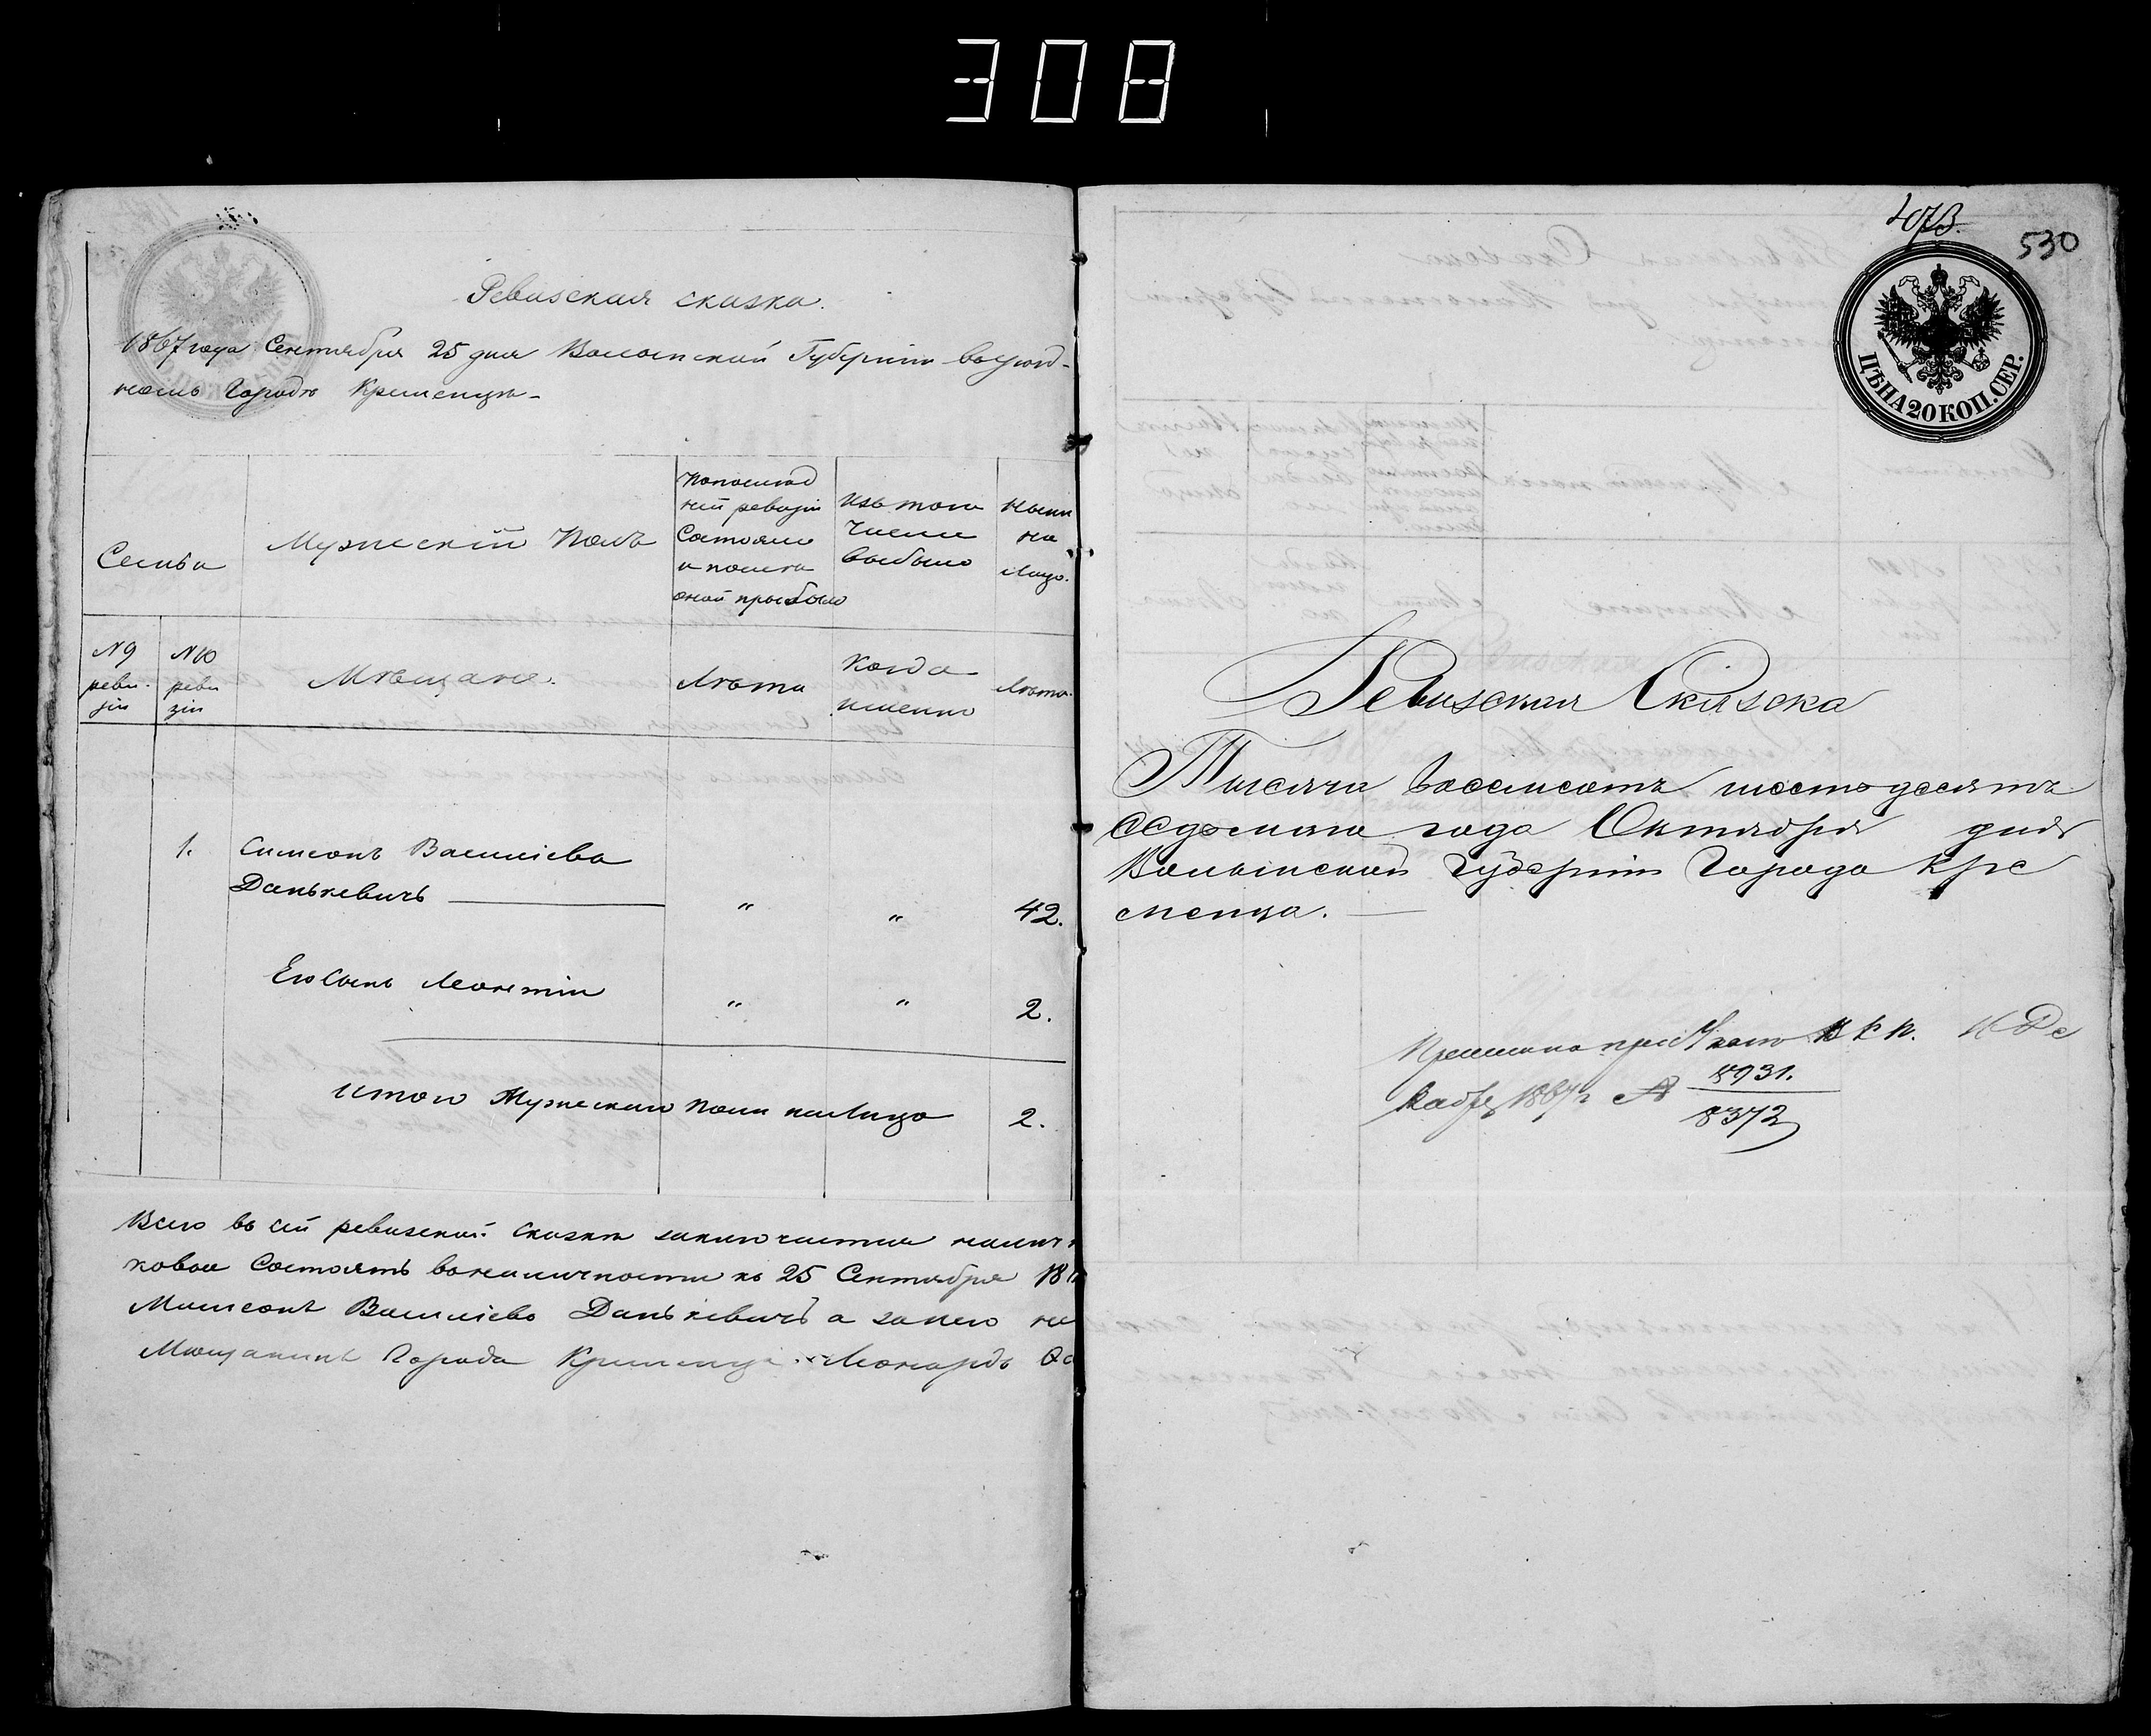 308
Ревизская сказка.
1867 года Сентября 25 дня Волынской Губерніи въ уезд-
номъ Городѣ Кременцѣ-
Семьи
Мужескій Полъ
По послѣд
ней ревизіи
Состояло
и после
оной прибыло
Изъ того
Числа
выбыло
Нынѣ
на
Лицо.
№ 9
реви-
зіи
№ 10
реви
зіи
Мѣщане.
Лѣта
Когда
именно
Лѣта.
1.
Симеонъ Василіева
Данькевичъ
"
"
42.
Его Сынъ Леонтій
"
"
2.
Итого Мужескаго пола на Лицо
2.
Всего въ сей ревизской Сказкѣ заключается
ковые Состоятъ въ наличности по 25 Сентября 18
Василіевъ Данькевичъ а за него
Мѣщанинъ Города Кременца Леонардъ
407
530
ЦѢНА 20 КОП. СЕР.
Ревизская Сказка
Тысяча восемсотъ шестдесятъ
седьмаго года Октября дня
Волынской Губерніи Города Кре
менца.
1867 г. №
8931.
8372